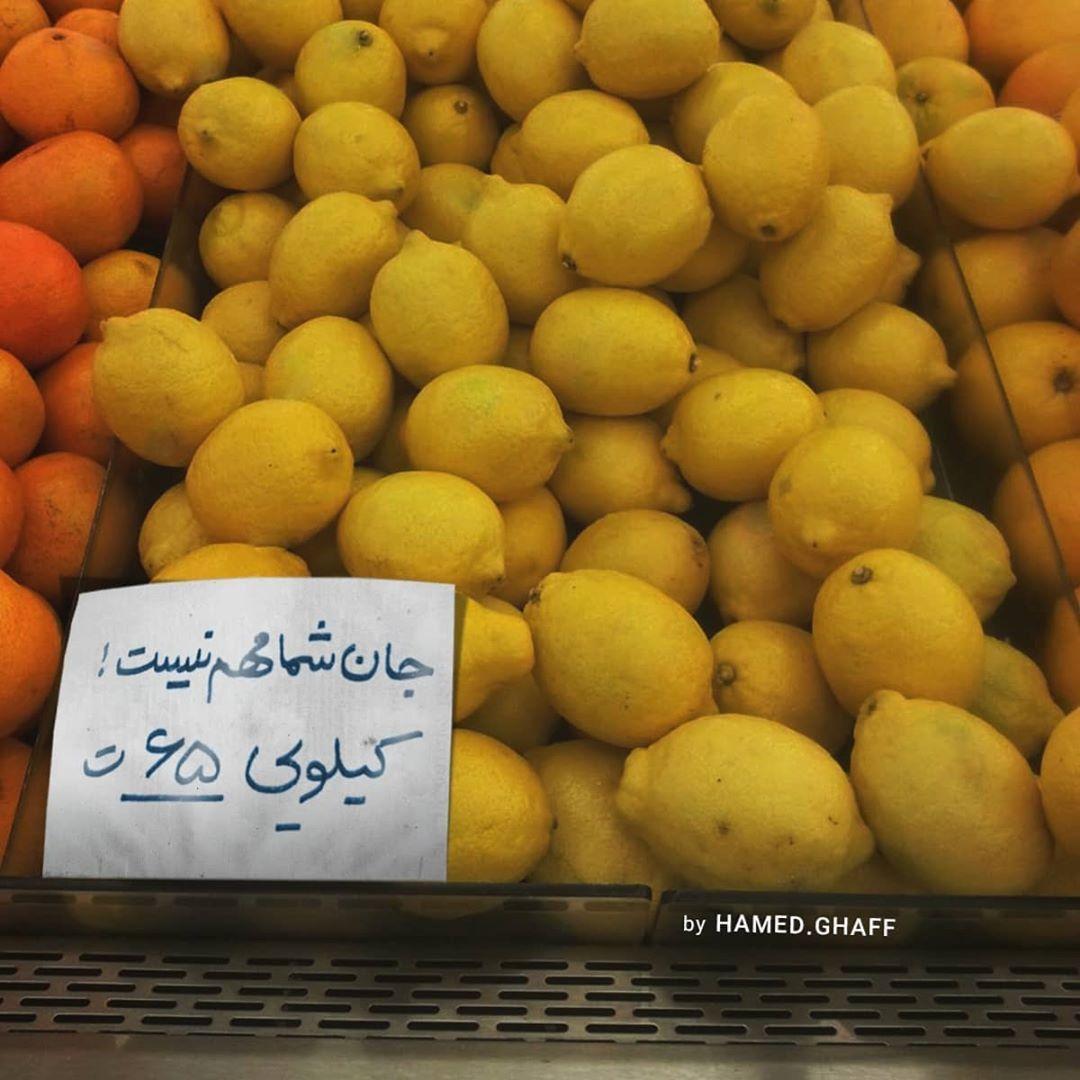 جان شما مهم نیست !
کیلویی ۶۵ ت
by HAMED.GHAFF